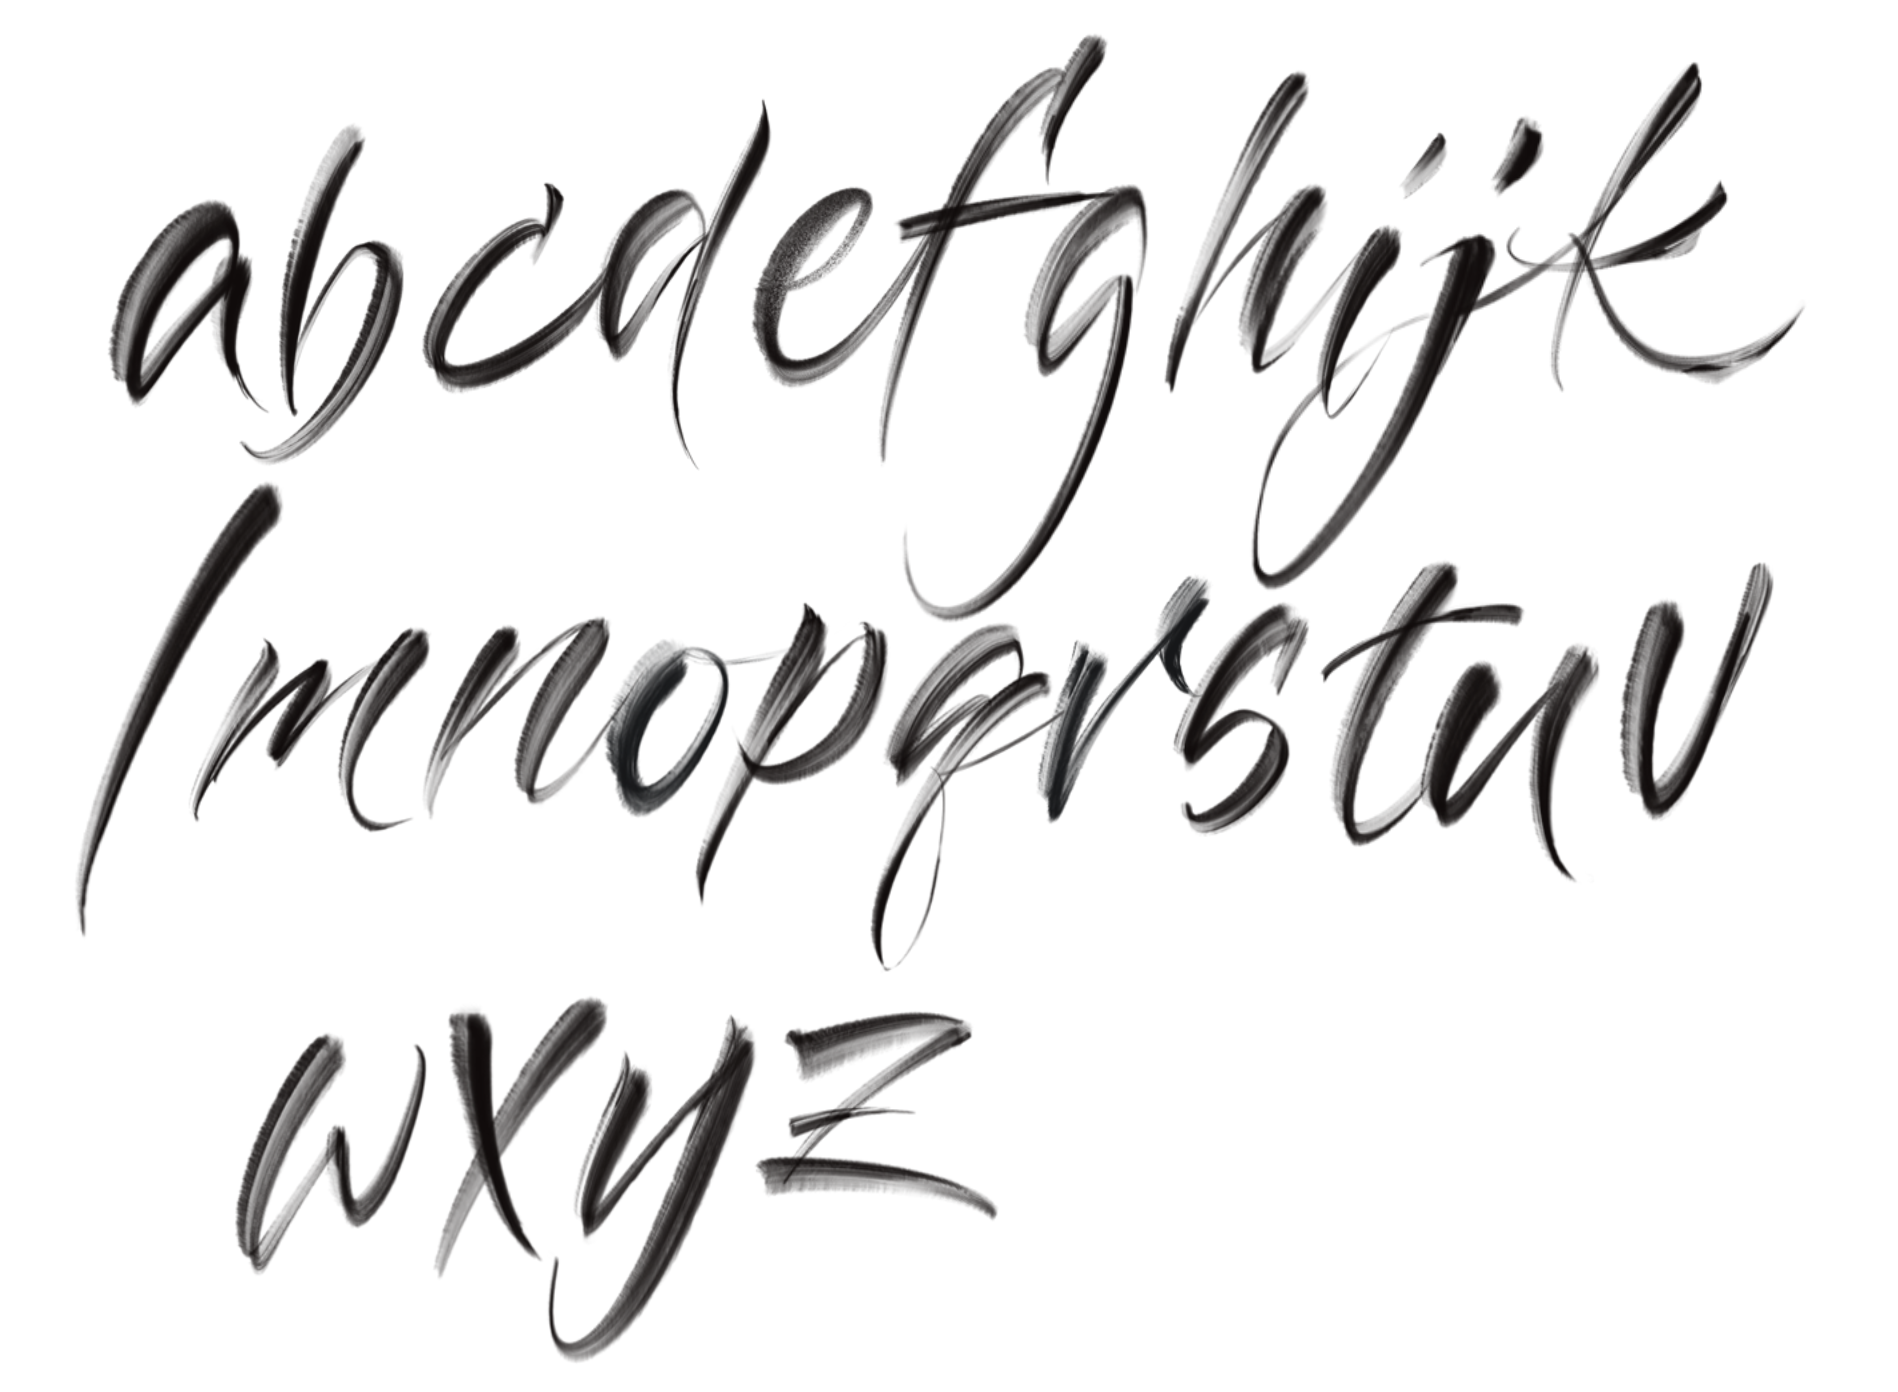 abcdefghijk
lmnopqrstuv
wxyz